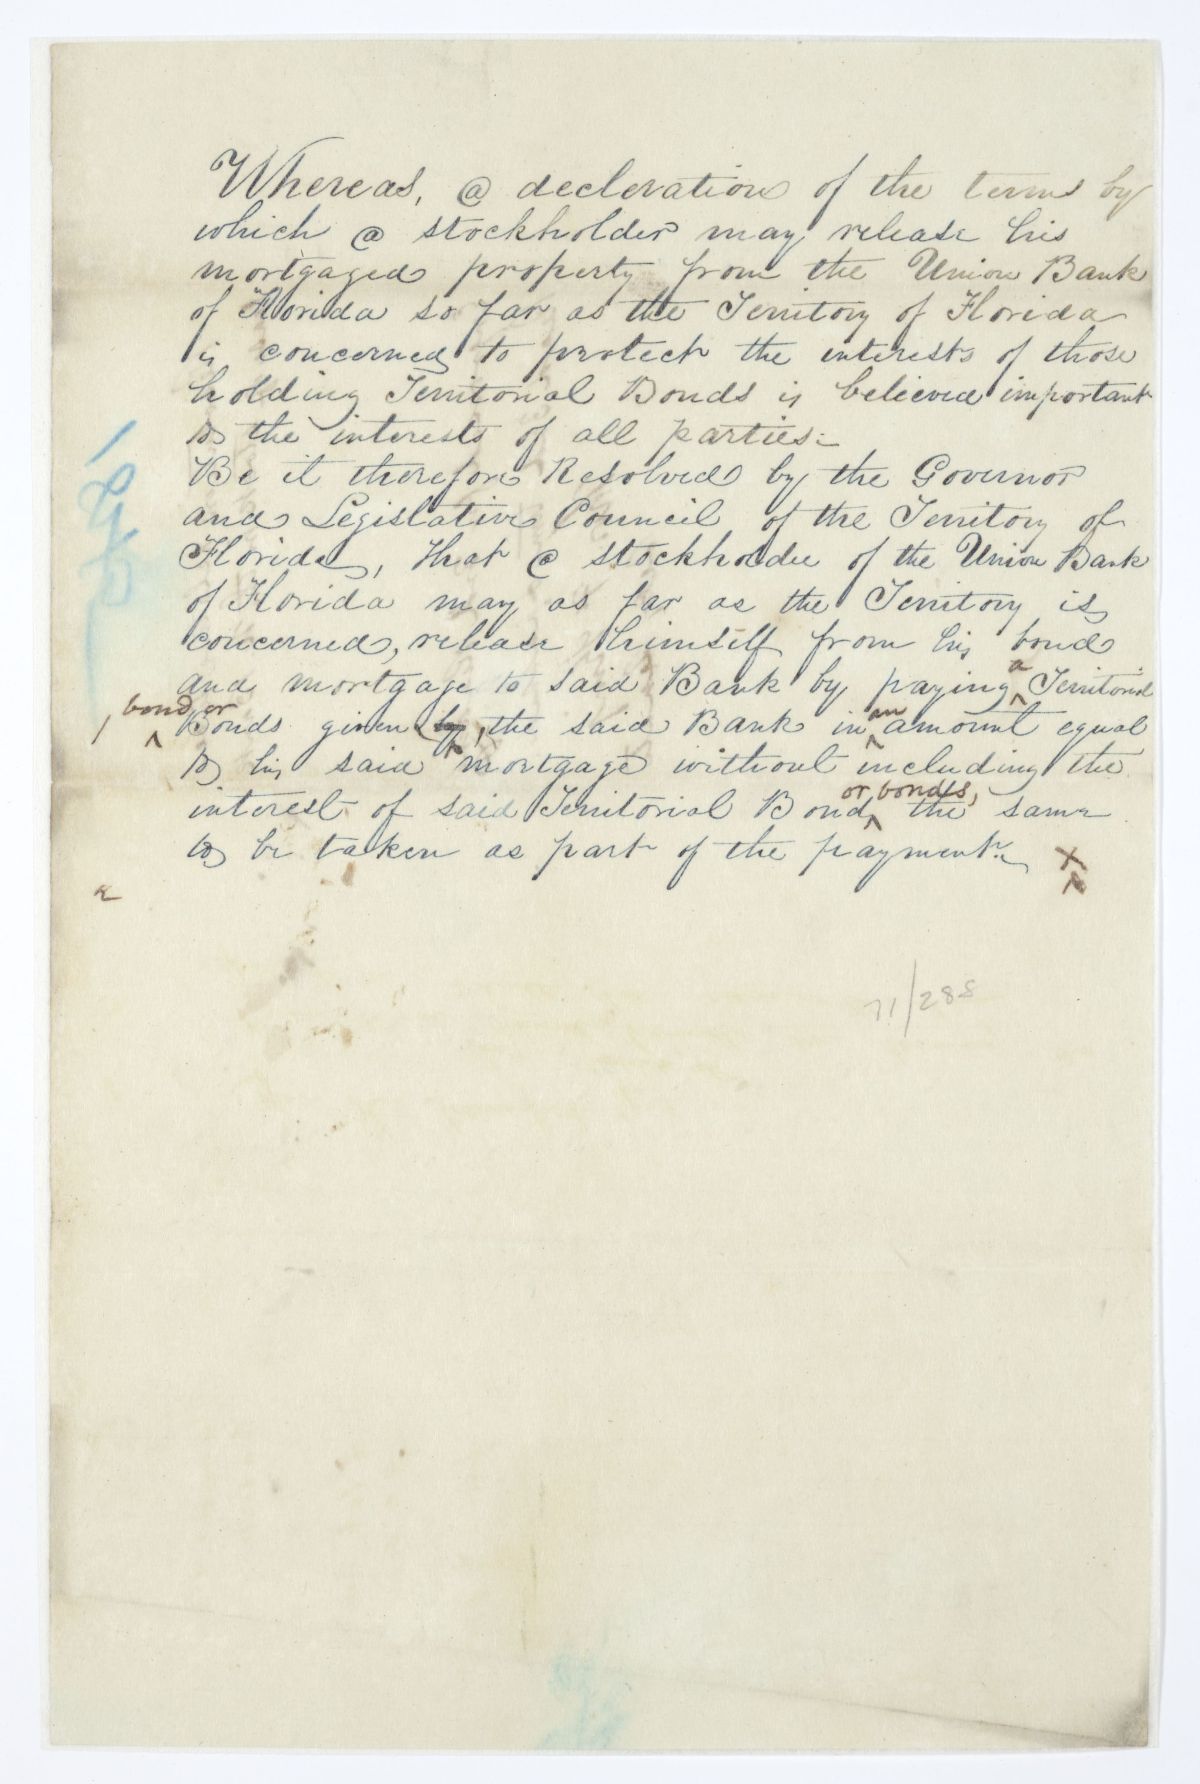 Whereas, a decleration of the terms by
which a stockholder may release his
mortgaged property from the Union Bank
of Florida so far as the Territory of Florida
is concerned to protect the interests of those
holding Territorial Bonds is believed important
to the interests of all parties:
Be it therefore Resolved by the Governor
and Legislative Council of the Territory of
Florida, that a stockholder of the Union Bank
of Florida may as far as the Territory is
concerned, release himself from his bond
a
and mortgage to said Bank by paying ^ Territorial
bond or
^ Bonds given by, the said Bank in ^ an amount equal
to his said ^ mortgage without including the
or bonds,
interest of said Territorial Bond ^ the same
to be taken as part of the payment. x
^
71/288